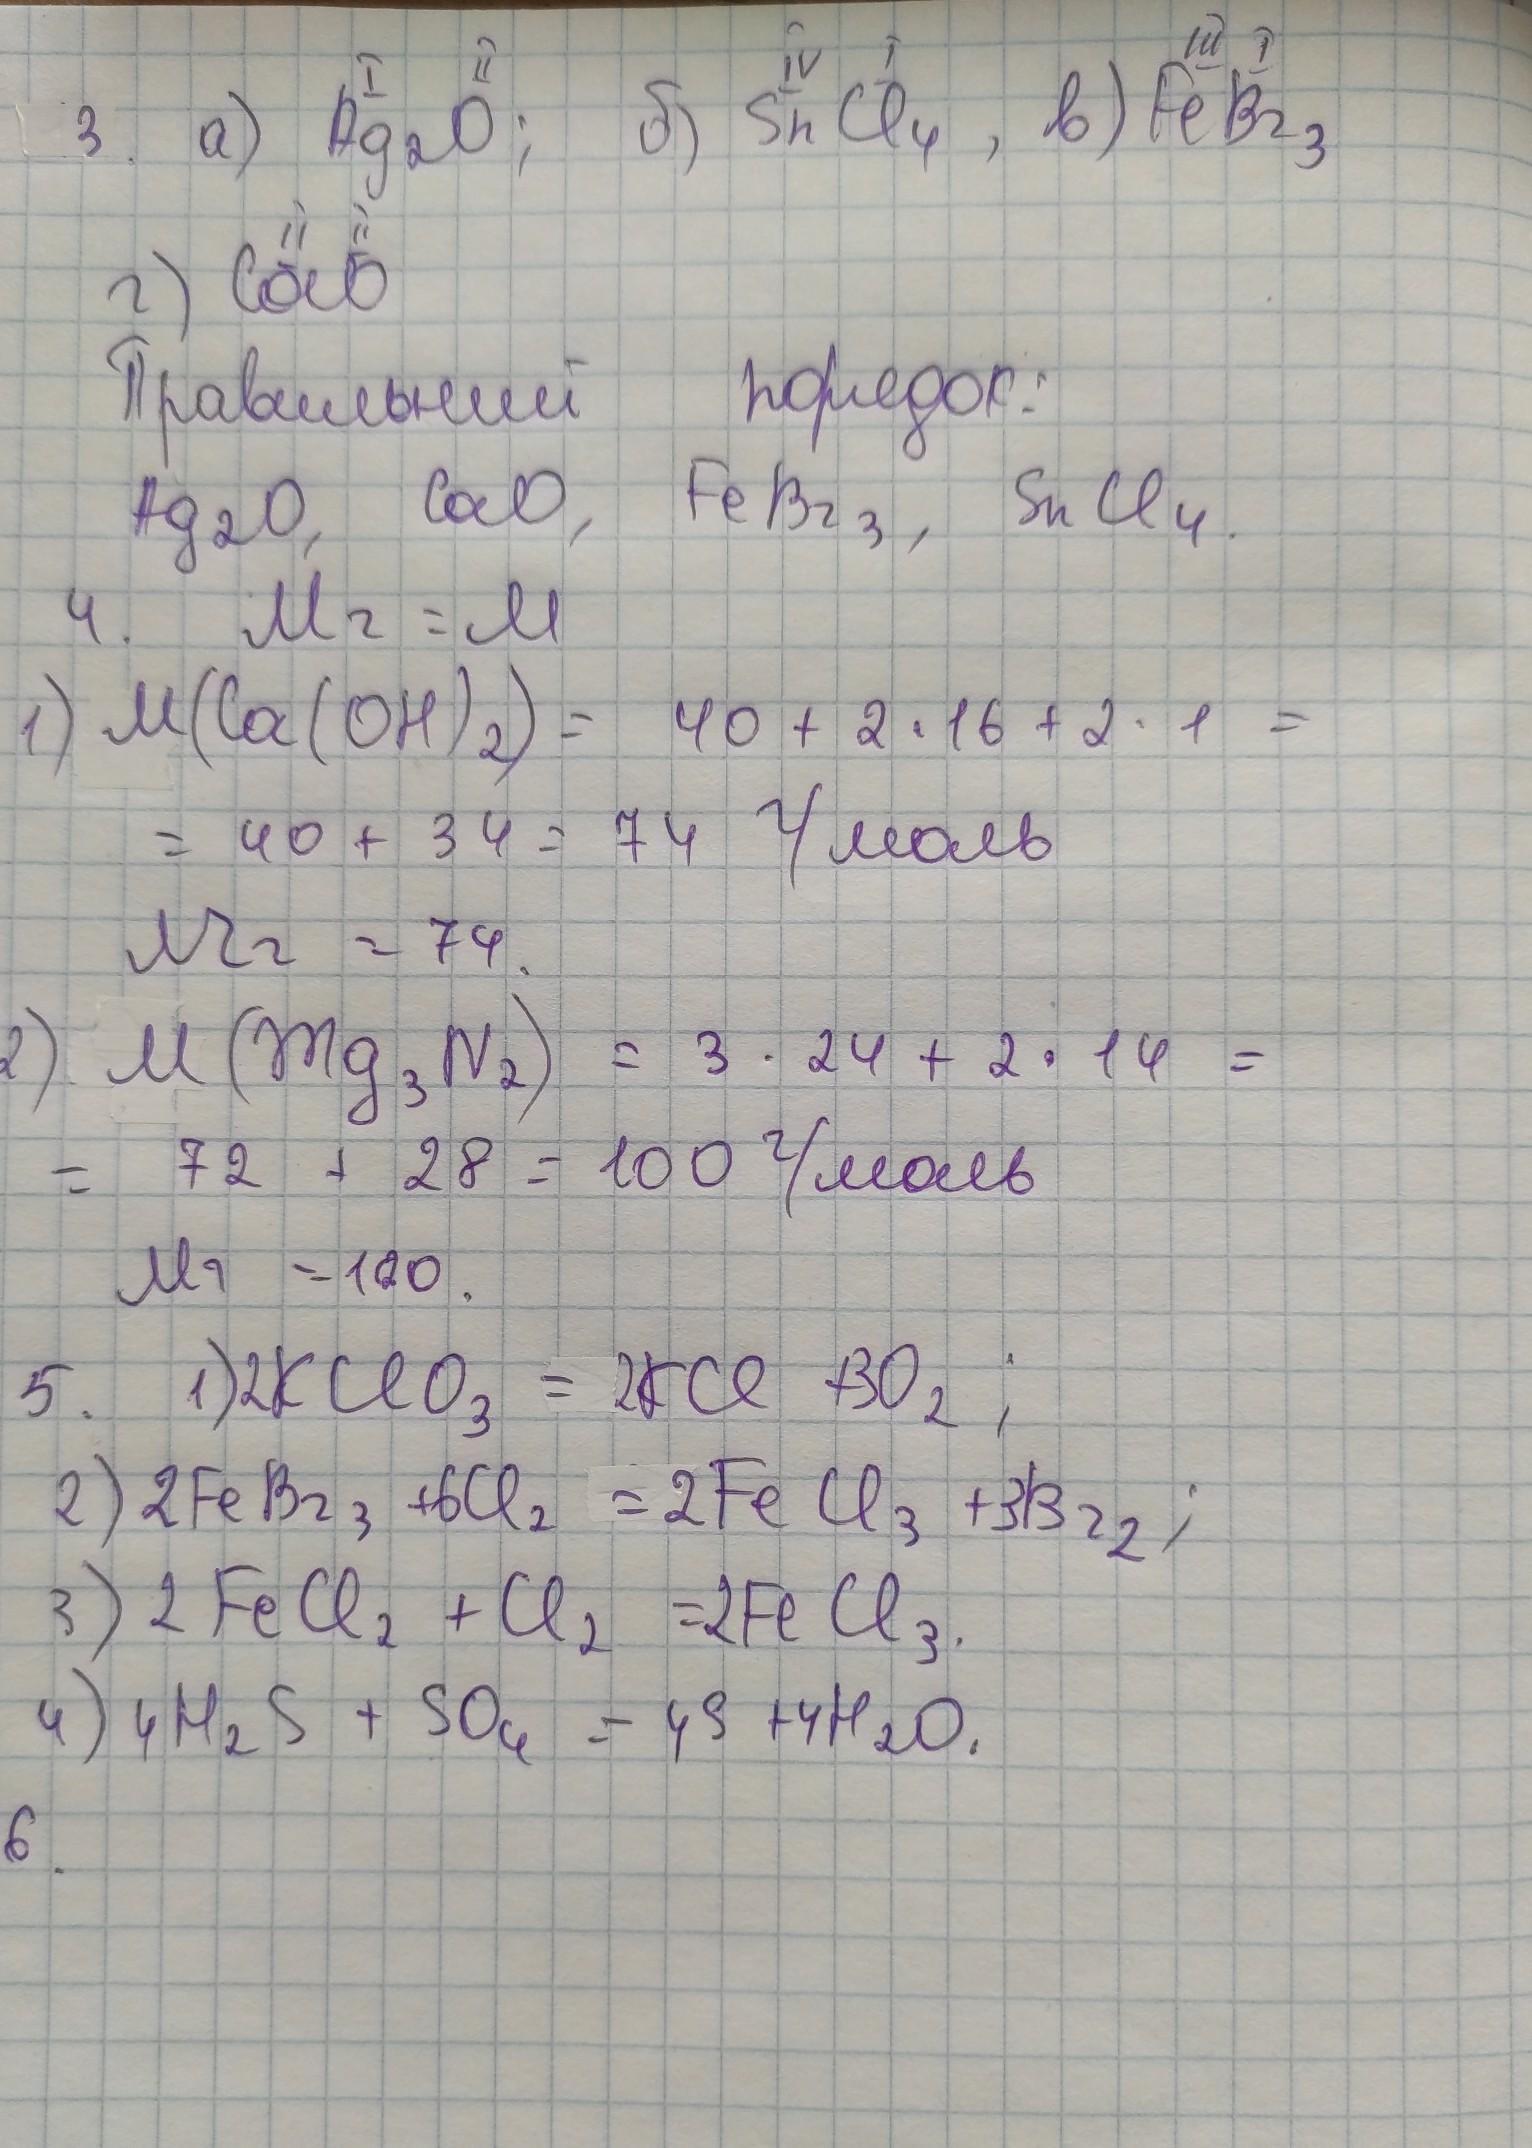 3. а) Ag₂O; б) SnCl₄, в) FeBr₃
I II IV I III I
г) CaO
II II
Правильний порядок:
Ag₂O, CaO, FeBr₃, SnCl₄.
4. Mr = M
1) M(Ca(OH)₂) = 40 + 2·16 + 2·1 =
= 40 + 34 = 74 г/моль
Mr = 74.
2) M(Mg₃N₂) = 3·24 + 2·14 =
= 72 + 28 = 100 г/моль
Mr = 100.
5. 1) 2KClO₃ = 2KCl + 3O₂;
2) 2FeBr₃ + 6Cl₂ = 2FeCl₃ + 3Br₂;
3) 2FeCl₂ + Cl₂ = 2FeCl₃.
4) 4H₂S + SO₄ = 4S + 4H₂O.
6.